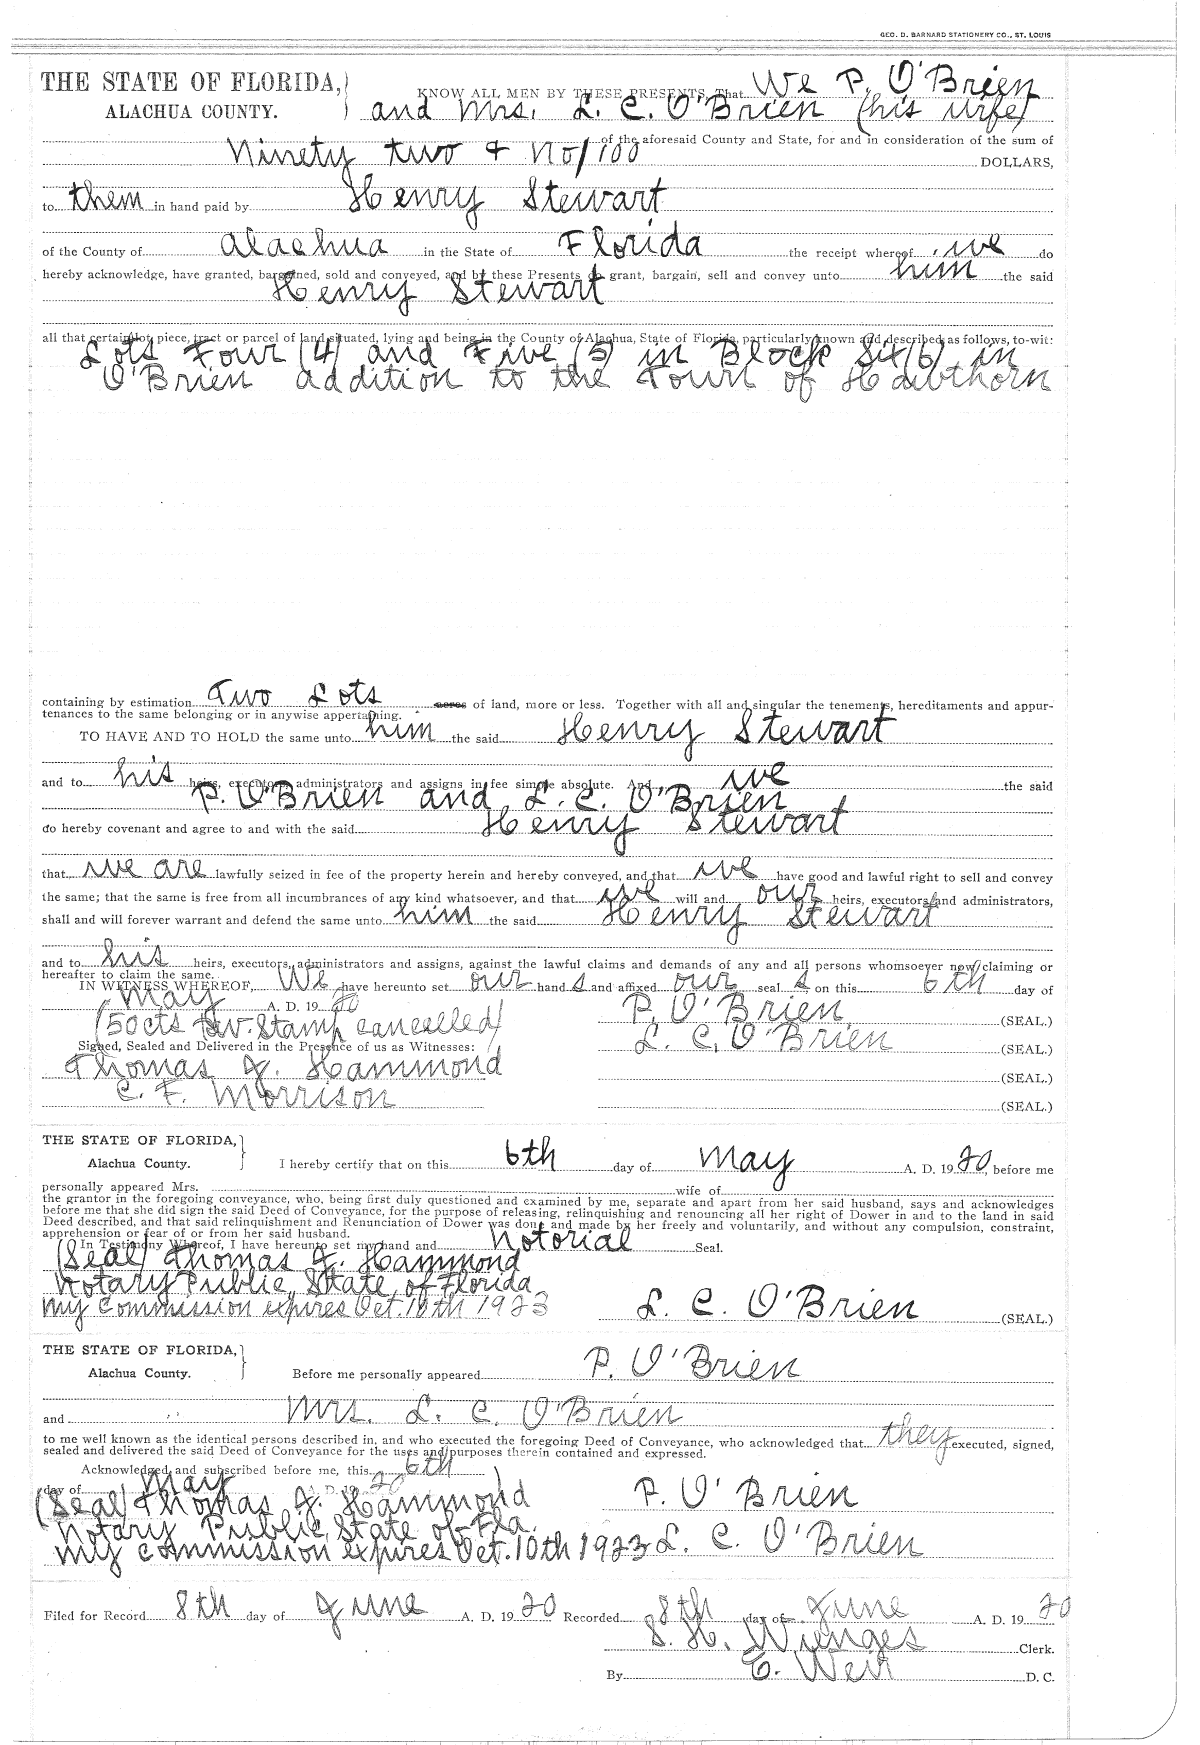 GEO. D. BARNARD STATIONERY CO., ST. LOUIS
THE STATE OF FLORIDA,
ALACHUA COUNTY.
KNOW ALL MEN BY THESE PRESENTS, That We P. O'Brien
and Mrs. L. C. O'Brien (his wife)
of the aforesaid County and State, for and in consideration of the sum of
Ninety two & No/100 DOLLARS,
to them in hand paid by Henry Stewart
of the County of Alachua in the State of Florida the receipt whereof we do
hereby acknowledge, have granted, bargained, sold and conveyed, and by these Presents do grant, bargain, sell and convey unto him the said
Henry Stewart
all that certain lot, piece, tract or parcel of land situated, lying and being in the County of Alachua, State of Florida, particularly known and described as follows, to-wit:
Lots Four (4) and Five (5) in Block Six (6) in
O'Brien addition to the Town of Hawthorn
containing by estimation Two Lots acres of land, more or less. Together with all and singular the tenements, hereditaments and appur-
tenances to the same belonging or in anywise appertaining.
TO HAVE AND TO HOLD the same unto him the said Henry Stewart
and to his heirs, executors, administrators and assigns in fee simple absolute. And we the said
P. O'Brien and L. C. O'Brien
do hereby covenant and agree to and with the said Henry Stewart
that we are lawfully seized in fee of the property herein and hereby conveyed, and that we have good and lawful right to sell and convey
the same; that the same is free from all incumbrances of any kind whatsoever, and that we will and our heirs, executors and administrators,
shall and will forever warrant and defend the same unto him the said Henry Stewart
and to his heirs, executors, administrators and assigns, against the lawful claims and demands of any and all persons whomsoever now claiming or
hereafter to claim the same.
IN WITNESS WHEREOF, We have hereunto set our hand s and affixed our seal s on this 6th day of
May A. D. 19 20
P. O'Brien (SEAL.)
(50cts Rev. Stamp cancelled)
L. C. O'Brien (SEAL.)
Signed, Sealed and Delivered in the Presence of us as Witnesses:
Thomas J. Hammond (SEAL.)
C. F. Morrison (SEAL.)
THE STATE OF FLORIDA,
Alachua County.
I hereby certify that on this 6th day of May A. D. 19 20, before me
personally appeared Mrs. wife of
the grantor in the foregoing conveyance, who, being first duly questioned and examined by me, separate and apart from her said husband, says and acknowledges
before me that she did sign the said Deed of Conveyance, for the purpose of releasing, relinquishing and renouncing all her right of Dower in and to the land in said
Deed described, and that said relinquishment and Renunciation of Dower was done and made by her freely and voluntarily, and without any compulsion, constraint,
apprehension or fear of or from her said husband.
In Testimony Whereof, I have hereunto set my hand and Notorial Seal.
(Seal) Thomas J. Hammond
Notary Public, State of Florida
My Commission expires Oct. 10th 1923
L. C. O'Brien (SEAL.)
THE STATE OF FLORIDA,
Alachua County.
Before me personally appeared P. O'Brien
and Mrs. L. C. O'Brien
to me well known as the identical persons described in, and who executed the foregoing Deed of Conveyance, who acknowledged that they executed, signed,
sealed and delivered the said Deed of Conveyance for the uses and purposes therein contained and expressed.
Acknowledged and subscribed before me, this 6th
day of May A. D. 19 20
(Seal) Thomas J. Hammond
P. O'Brien
Notary Public, State of Fla.
My commission expires Oct. 10th 1923
L. C. O'Brien
Filed for Record 8th day of June A. D. 19 20 Recorded 8th day of June A. D. 19 20
S. H. Wienges Clerk.
By C. Weir D. C.